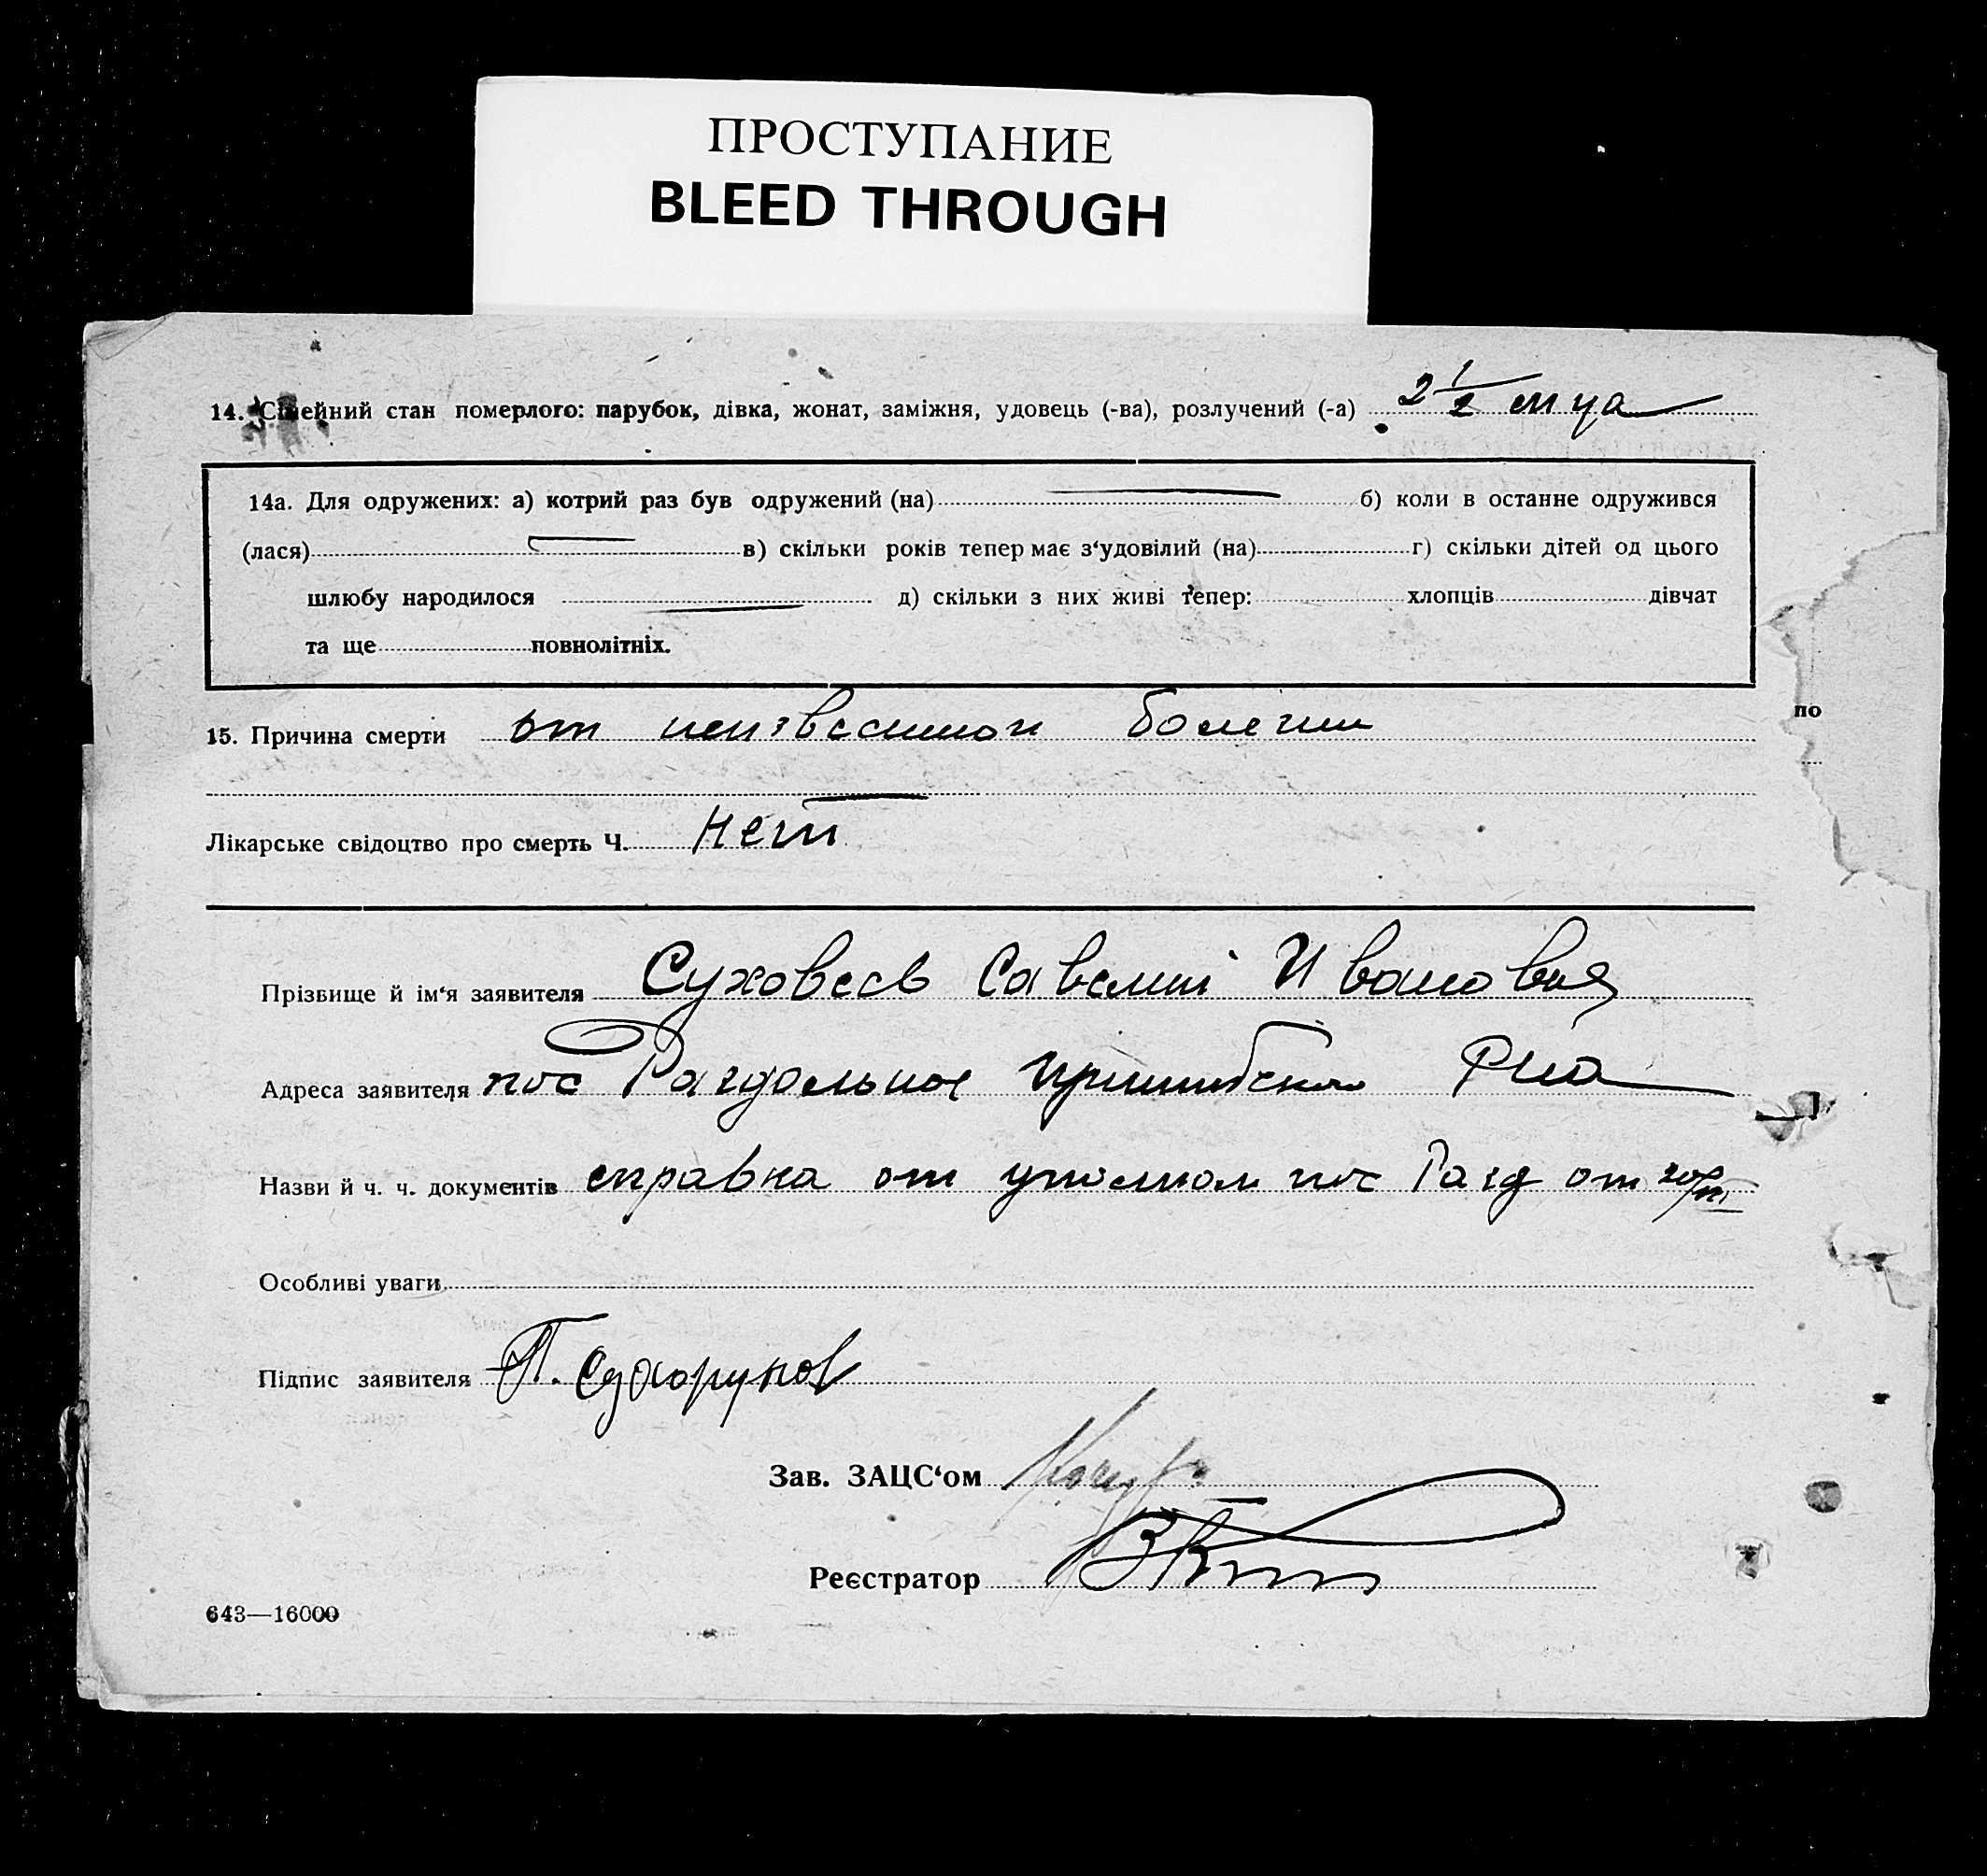 ПРОСТУПАНИЕ
BLEED THROUGH
14. Сімейний стан померлого: парубок, дівка, жонат, заміжня, удовець (-ва), розлучений (-а) 2 1/2 м-ца
14а. Для одружених: а) котрий раз був одружений (на) б) коли в останне одружився
(лася) в) скільки років тепер має з‘удовілий (на) г) скільки дітей од цього
шлюбу народилося д) скільки з них живі тепер: хлопців дівчат
та ще повнолітніх.
по
15. Причина смерти от неизвестной болезни
Лікарське свідоцтво про смерть Ч. Нет
Прізвище й ім‘я заявителя Суховеев Савелий Иванович
Адреса заявителя пос Раздольное Пришибского Р-на
Назви й ч. ч. документів справка от уполном пос Разд от 20/VI
Особливі уваги
Підпис заявителя П. Сухоруков
Зав. ЗАЦС‘ом
Реєстратор
643—16000